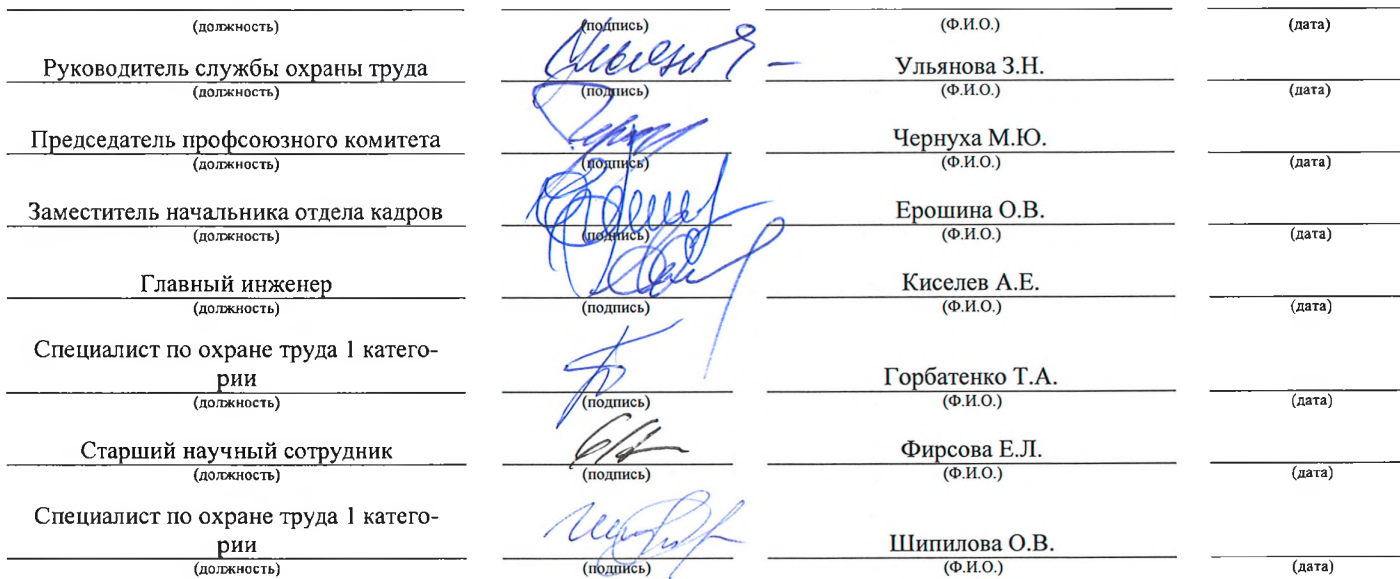 (должность) (подпись) (Ф.И.О.) (дата)
Руководитель службы охраны труда Ульянова З.Н.
(должность) (подпись) (Ф.И.О.) (дата)
Председатель профсоюзного комитета Чернуха М.Ю.
(должность) (подпись) (Ф.И.О.) (дата)
Заместитель начальника отдела кадров Ерошина О.В.
(должность) (подпись) (Ф.И.О.) (дата)
Главный инженер Киселев А.Е.
(должность) (подпись) (Ф.И.О.) (дата)
Специалист по охране труда 1 катего-
рии Горбатенко Т.А.
(должность) (подпись) (Ф.И.О.) (дата)
Старший научный сотрудник Фирсова Е.Л.
(должность) (подпись) (Ф.И.О.) (дата)
Специалист по охране труда 1 катего-
рии Шипилова О.В.
(должность) (подпись) (Ф.И.О.) (дата)